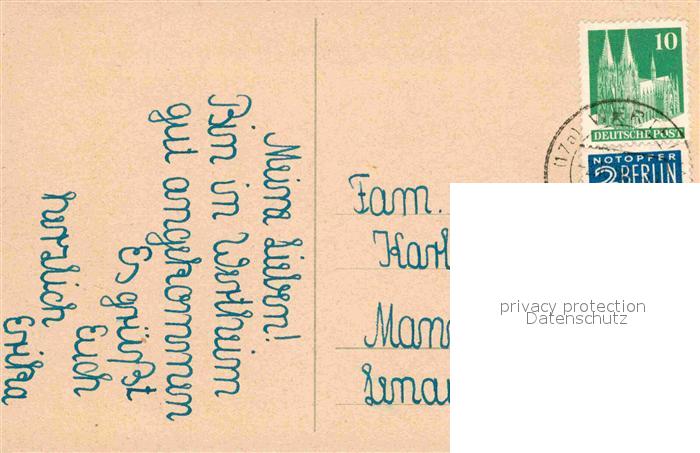 Meine Lieben!
Bin in Wertheim
gut angekommen
Es grüßt
Euch
herzlich
Erika
Fam.
Karl
10
DEUTSCHE POST
NOTOPFER
2 BERLIN
(17a)
privacy protection
Datenschutz